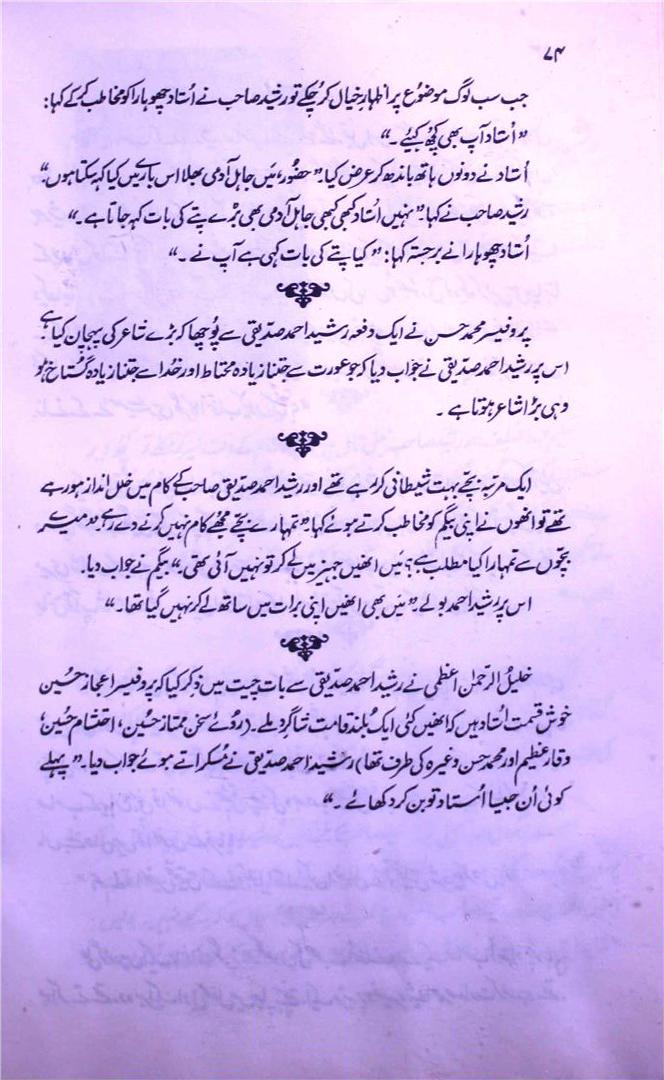 ۷۴
جب سب لوگ موضوع پر اظہارِ خیال کر چکے تو رشید صاحب نے اُستاد چھوہارا کو مخاطب کر کے کہا:
”اُستاد آپ بھی کچھ کہیئے۔“
اُستاد نے دونوں ہاتھ باندھ کر عرض کیا۔ ”حضُور، مَیں جاہل آدمی بھلا اس بارے میں کیا کہہ سکتا ہوں“
رشید صاحب نے کہا ”نہیں اُستاد کبھی کبھی جاہل آدمی بھی بڑے پتے کی بات کہہ جاتا ہے۔“
اُستاد چھوہارا نے برجستہ کہا: ”کیا پتے کی بات کہی ہے آپ نے۔“
پروفیسر محمد حسن نے ایک دفعہ رشید احمد صدّیقی سے پُوچھا کہ بڑے شاعر کی پہچان کیا ہے؟
اس پر رشید احمد صدّیقی نے جواب دیا کہ جو عورت سے جتنا زیادہ محتاط اور خدا سے جتنا زیادہ گستاخ ہو
وہی بڑا شاعر ہوتا ہے۔
ایک مرتبہ بچّے بہت شیطانی کر رہے تھے اور رشید احمد صدّیقی صاحب کے کام میں خلل انداز ہو رہے
تھے تو انھوں نے اپنی بیگم کو مخاطب کرتے ہوئے کہا ”تمہارے بچّے مجھے کام نہیں کرنے دے رہے۔“ ”میرے
بچّوں سے تمہارا کیا مطلب ہے؟ مَیں انھیں جہیز میں لے کر تو نہیں آئی تھی۔“ بیگم نے جواب دیا۔
اس پر رشید احمد بولے۔ ”مَیں بھی انھیں اپنی برات میں ساتھ لے کر نہیں گیا تھا۔“
خلیلُ الرّحمٰن اعظمی نے رشید احمد صدّیقی سے بات چیت میں ذکر کیا کہ پروفیسر اعجاز حسین
خوش قسمت اُستاد ہیں کہ انھیں کئی ایک بُلند قامت شاگرد ملے۔ (روئے سخن ممتاز حسین، احتشام حسین،
وقار عظیم اور محمد حسن وغیرہ کی طرف تھا) رشید احمد صدّیقی نے مُسکراتے ہوئے جواب دیا۔ ”پہلے
کوئی اُن جیسا اُستاد تو بن کر دکھائے۔“